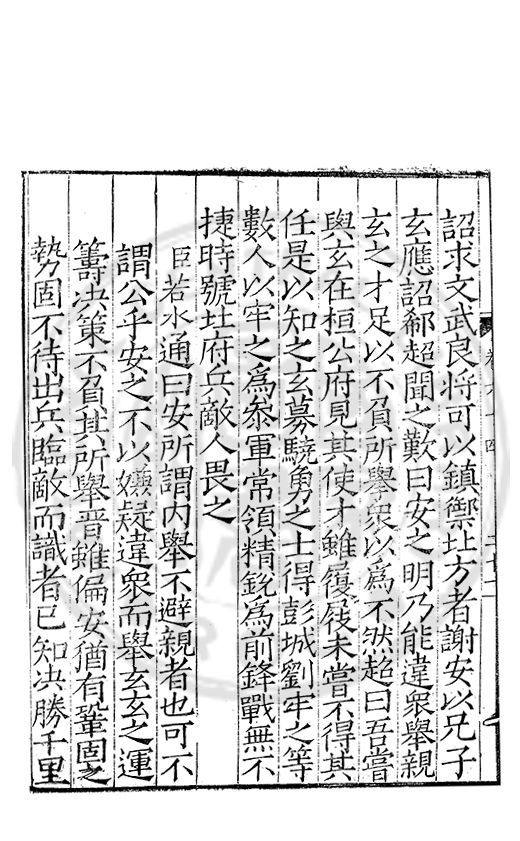 詔求文武良將可以鎮禦北方者謝安以兄子
玄應詔郗超聞之歎曰安之明乃能違眾舉親
玄之才足以不負所舉眾以為不然超曰吾嘗
與玄在桓公府見其使才雖履屐未嘗不得其
任是以知之玄募驍勇之士得彭城劉牢之等
數人以牢之為叅軍常領精銳為前鋒戰無不
捷時號北府兵敵人畏之
臣若水通曰安所謂內舉不避親者也可不
謂公乎安之不以嫌疑違眾而舉玄玄之運
籌决策不負其所舉晋雖偏安猶有鞏固之
勢固不待出兵臨敵而識者已知决勝千里